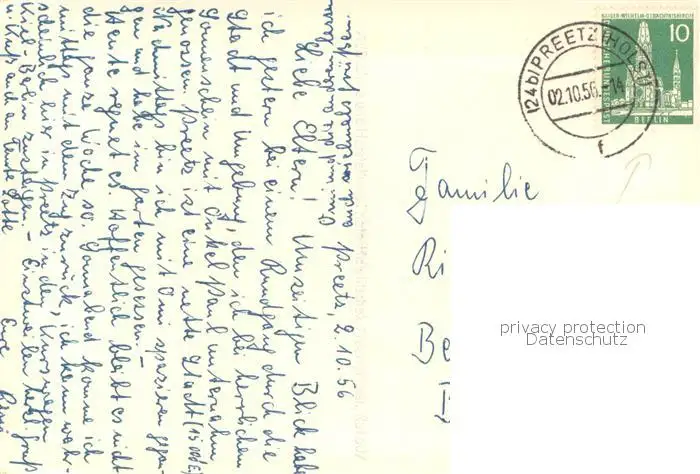 Preetz, 2. 10. 56
Liebe Eltern! Umseitigen Blick habe
ich gestern bei einem Rundgang durch die
Stadt und Umgebung, den ich bei herrlichem
Sonnenschein mit Onkel Paul unternahm
genossen. Preetz ist eine nette Stadt (15 000 E).
Nachmittags bin ich mit Omi spazieren gegan-
gen und habe im Garten gesessen. -
Heute regnet es. Hoffentlich bleibt es nicht
die ganze Woche so. Sonnabend komme ich
mittags mit dem Zug zurück, ich kann wahr-
scheinlich hier in Preetz in den Kurswagen
Kiel-Berlin zusteigen. - Einstweilen viele Grüße
u. Kuß auch an Tante Lotte Eure
Omi und
(24b) PREETZ (HOLST)
02.10.56.-14
f
KAISER-WILHELM-GEDÄCHTNISKIRCHE
10
DEUTSCHE BUNDESPOST
BERLIN
Familie
Ri
Be
privacy protection
Datenschutz